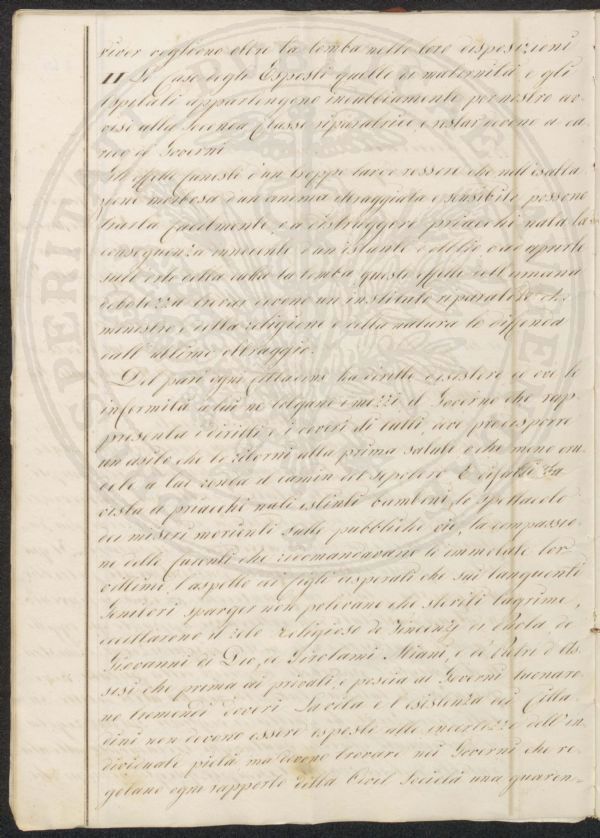 viver vogliono oltre la tomba nelle loro disposizioni
II Le Case degli Esposti quelle di maternità, e gli
Ospitali appartengono indubbiamente per nostro av-
viso alla seconda Classe riparatrice, e restar devono a ca-
rico de' Governi
Gli effetti funesti d'un troppo tardo rossore che nell'esalta-
zione morbosa d'un anima oltraggiata, e sensibile possono
trarla facilmente, o a distruggere priacchè nata la
conseguenza innocente d'un istante d'oblio o ad aprirle
sull'orlo della culla la tomba, questi effetti dell'umana
debolezza trovar devono un instituto riparatore che
ministro e della religione e della natura lo diffenda
dall'ultimo oltraggio.
Del pari ogni Cittadino ha diritto d'esistere, ed ove le
infermità a lui ne tolgano i mezzi, il Governo che rap-
presenta i diritti, e i doveri di tutti, deve predisporre
un asilo che lo ritorni alla prima salute, o che meno cru-
dele a lui renda il camin del sepolcro. E difatti la
vista di priacchè nati estinti bambini, lo spettacolo
dei miseri morienti sulle pubbliche vie, la compassio-
ne delle Parenti che raccomandavano le immolate lor
vittime, l'aspetto dei figli disperati che sui languenti
Genitori sparger non potevano che sterili lagrime,
eccittarono il zelo religioso de' Vincenzi di Paola, de
Giovanni di Dio, de Girolami Miani, e de' Pietri d'As-
sisi che prima ai privati, e poscia ai Governi tuonaro-
no tremendi doveri. La vita e l'esistenza dei Citta-
dini non devono essere esposte alle incertezze dell'in-
dividuale pietà ma devono trovare nei Governi che re-
golano ogni rapporto della Civil Società una guaren-